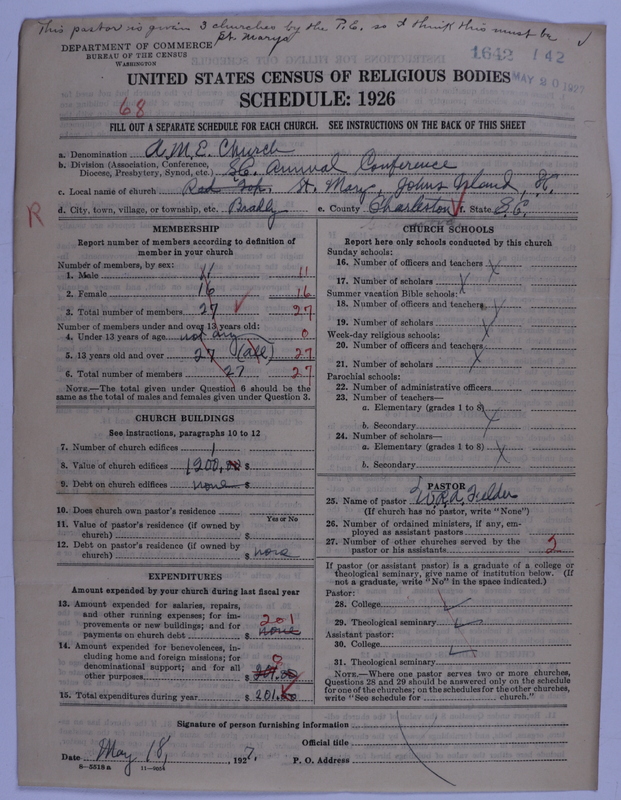 This pastor is given 3 churches by the P.E. so I think this must be
St. Marys
DEPARTMENT OF COMMERCE
BUREAU OF THE CENSUS
WASHINGTON
1642 142
MAY 20 1927
UNITED STATES CENSUS OF RELIGIOUS BODIES
SCHEDULE: 1926
68
FILL OUT A SEPARATE SCHEDULE FOR EACH CHURCH. SEE INSTRUCTIONS ON THE BACK OF THIS SHEET
a. Denomination A.M.E. Church
b. Division (Association, Conference, Diocese, Presbytery, Synod, etc.) S.C. Annual Conference
c. Local name of church Red Top. St. Mary, Johns Island,
R
d. City, town, village, or township, etc. e. County Charleston f. State S.C.
MEMBERSHIP
Report number of members according to definition of member in your church
Number of members, by sex:
1. Male 11 11
2. Female 16 16
3. Total number of members 27 27
Number of members under and over 13 years old:
4. Under 13 years of age not any 0
5. 13 years old and over 27 (all) 27
6. Total number of members 27 27
NOTE.—The total given under Question 6 should be the same as the total of males and females given under Question 3.
CHURCH BUILDINGS
See instructions, paragraphs 10 to 12
7. Number of church edifices 1
8. Value of church edifices $ 1200.00
9. Debt on church edifices $ none
10. Does church own pastor's residence
Yes or No
11. Value of pastor's residence (if owned by church) $
12. Debt on pastor's residence (if owned by church) $ none
EXPENDITURES
Amount expended by your church during last fiscal year
13. Amount expended for salaries, repairs, and other running expenses; for improvements or new buildings; and for payments on church debt $ none 201
14. Amount expended for benevolences, including home and foreign missions; for denominational support; and for all other purposes $ 201.00 0
15. Total expenditures during year $ 201.00
CHURCH SCHOOLS
Report here only schools conducted by this church
Sunday schools:
16. Number of officers and teachers
17. Number of scholars
Summer vacation Bible schools:
18. Number of officers and teachers
19. Number of scholars
Week-day religious schools:
20. Number of officers and teachers
21. Number of scholars
Parochial schools:
22. Number of administrative officers
23. Number of teachers—
a. Elementary (grades 1 to 8)
b. Secondary
24. Number of scholars—
a. Elementary (grades 1 to 8)
b. Secondary
PASTOR
25. Name of pastor Fielder
(If church has no pastor, write "None")
26. Number of ordained ministers, if any, employed as assistant pastors
27. Number of other churches served by the pastor or his assistants 2
If pastor (or assistant pastor) is a graduate of a college or theological seminary, give name of institution below. (If not a graduate, write "No" in the space indicated.)
Pastor:
28. College
29. Theological seminary
Assistant pastor:
30. College
31. Theological seminary
NOTE.—Where one pastor serves two or more churches, Questions 28 and 29 should be answered only on the schedule for one of the churches; on the schedules for the other churches, write "See schedule for church."
Signature of person furnishing information
Official title
Date May 18, 1927.
P. O. Address
8—5518a 11—9054